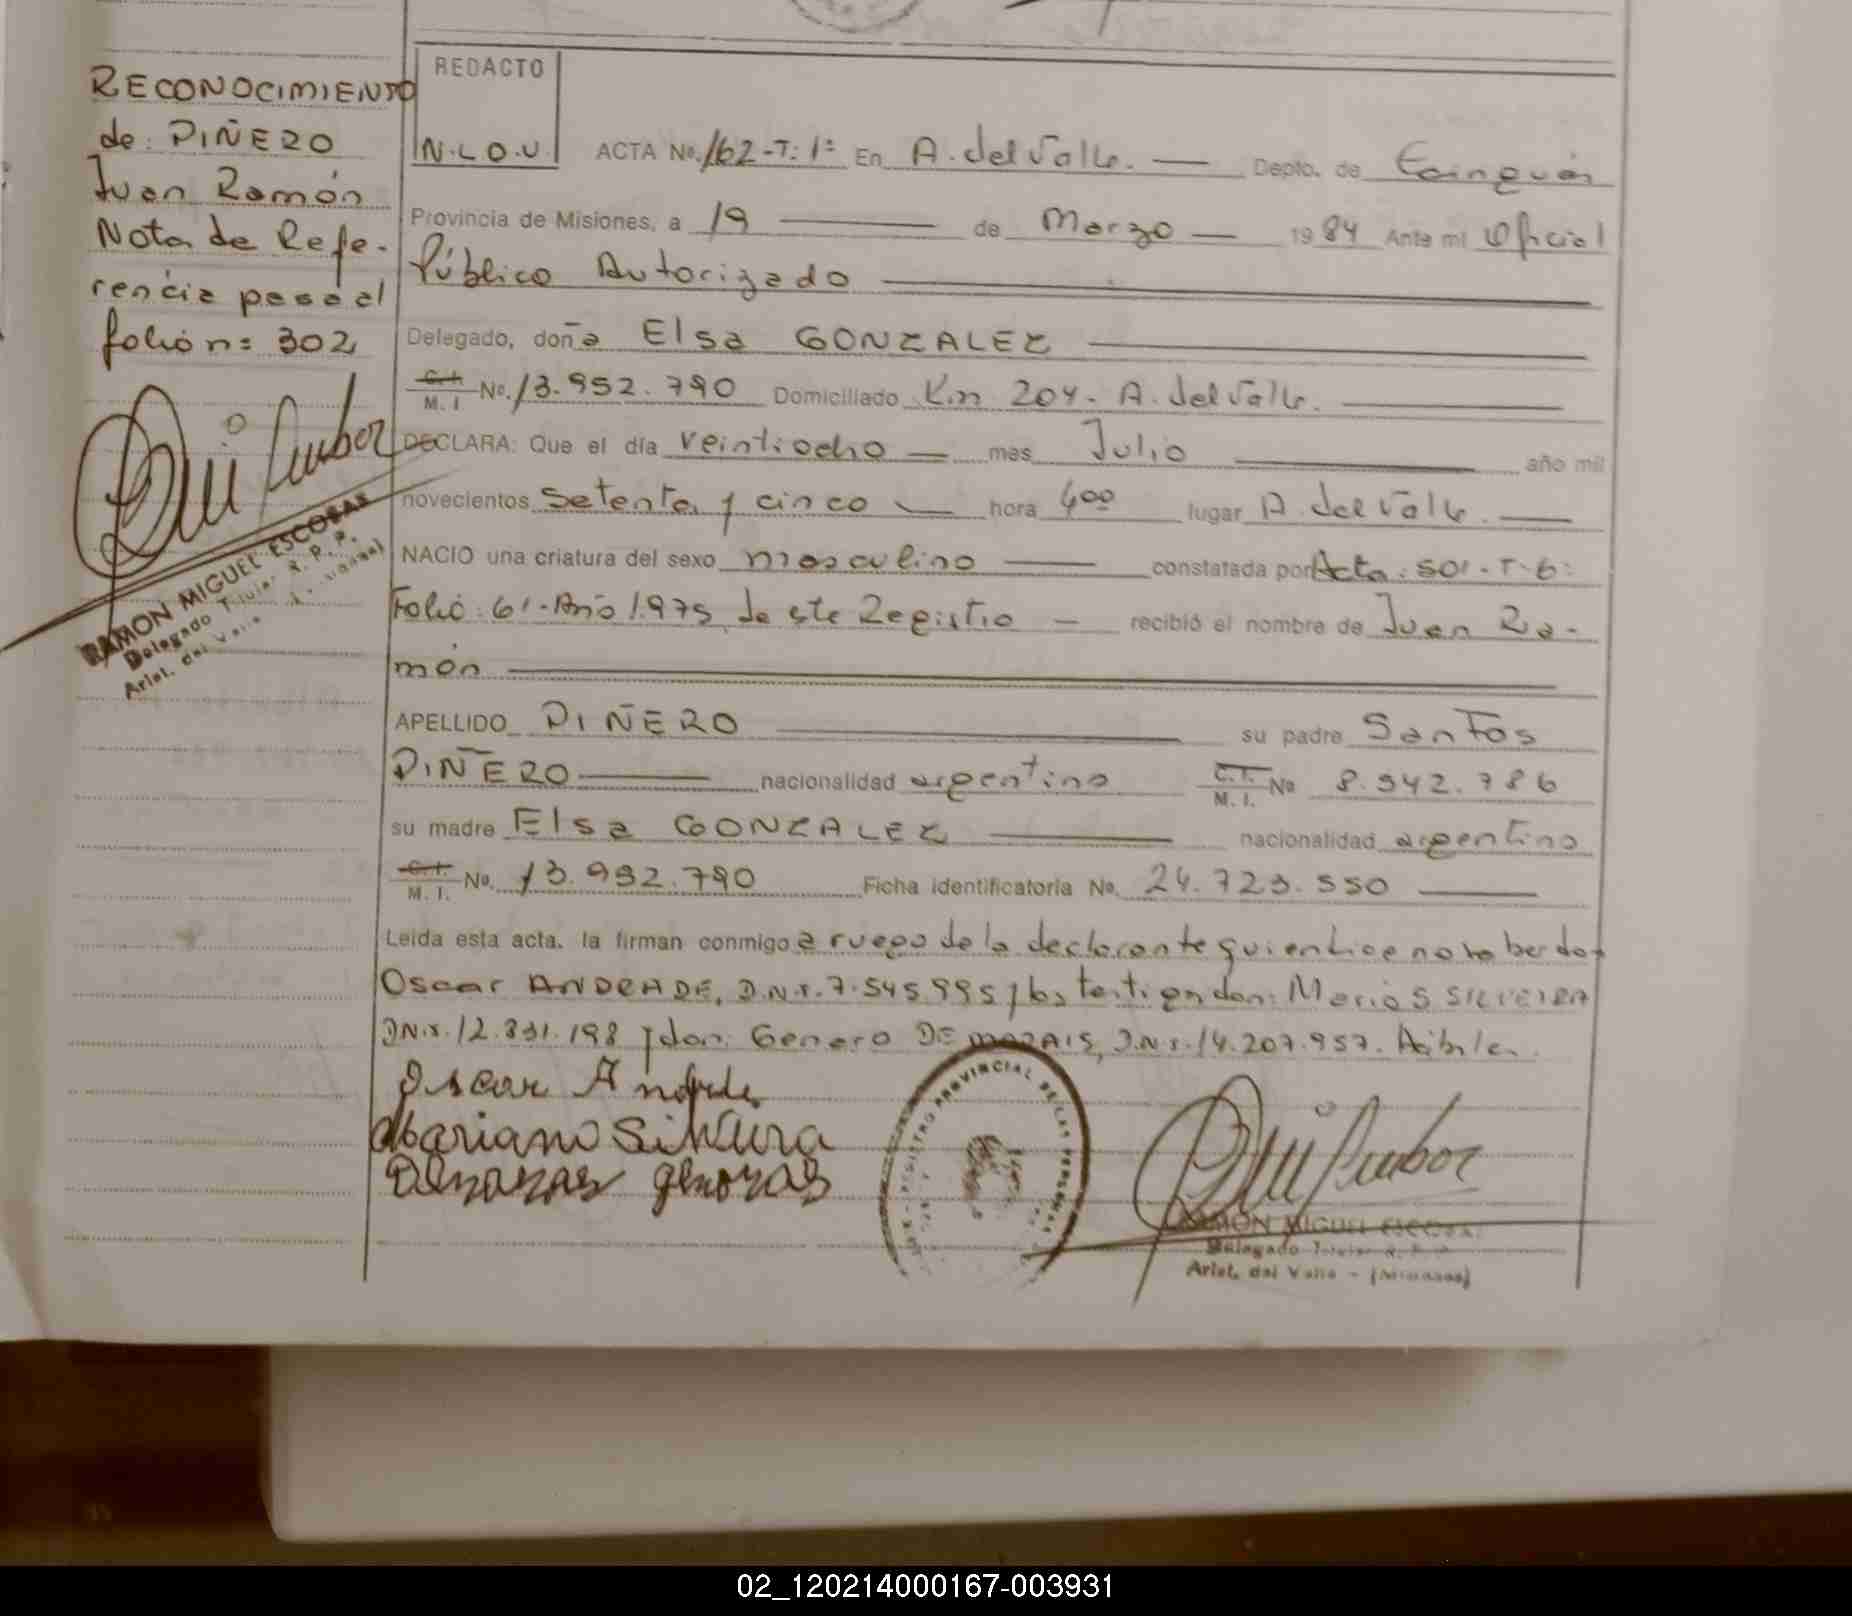 RECONOCIMIENTO
de: PIÑERO
Juan Ramón
Nota de Refe-
rencia pasa al
folio n: 302
RAMON MIGUEL ESCOBAR
Delegado Titular R. P. P.
Arist. del Valle
REDACTO
N.L.O.U.
ACTA No. 162-T: 1º En A. del Valle. Depto. de Cainguás
Provincia de Misiones, a 19 de Marzo 1984 Ante mi Oficial
Público Autorizado
Delegado, doña Elsa GONZALEZ
C.I. M. I No. 13.952.790 Domiciliado Km 204. A. del Valle.
DECLARA: Que el día veintiocho mes Julio año mil
novecientos setenta y cinco hora 400 lugar A. del Valle.
NACIO una criatura del sexo masculino constatada por Acta: 501-T-6:
Folio: 61-Año 1.975 de este Registro recibió el nombre de Juan Ra-
món
APELLIDO PIÑERO su padre Santos
PIÑERO nacionalidad argentino C.I. M. I. No 8.542.786
su madre Elsa GONZALEZ nacionalidad argentino
C.I. M. I. No. 13.952.790 Ficha identificatoria No. 24.723.550
Leida esta acta. la firman conmigo a ruego de la declarante quien dice no saber don
Oscar ANDRADE, D.N.I. 7.545.995 y los testigos don: Mario S SILVEIRA
D.N.I. 12.831.198 y don: Genaro DE MORAIS, D.N.I. 14.207.957.
Oscar Andrade
Mariano Silveira
REGISTRO PROVINCIAL DE LAS PERSONAS
RAMON MIGUEL ESCOBAR
Delegado Titular R. P. P.
Arist. del Valle - (Misiones)
02_120214000167-003931